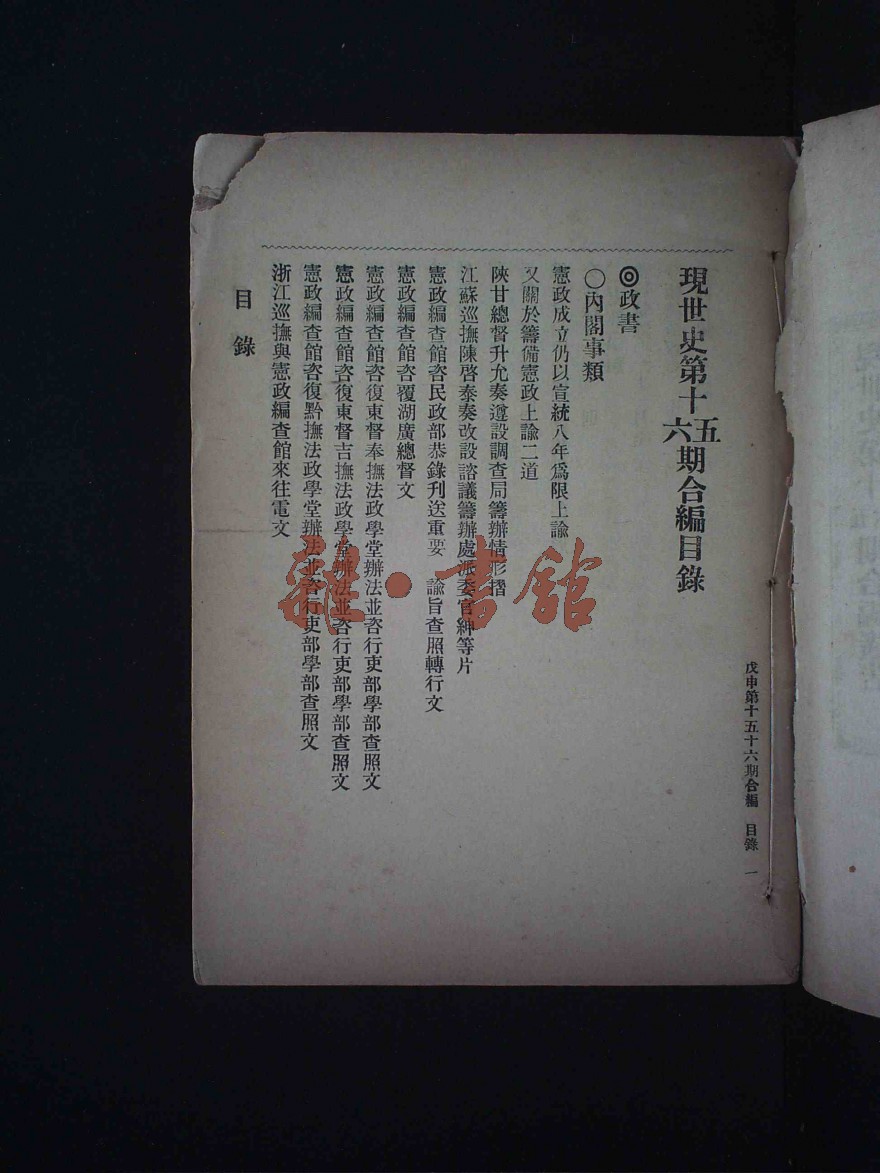 戊申第十五十六期合編　目錄　一
現世史第十五六期合編目錄
◎政書
〇內閣事類
憲政成立仍以宣統八年爲限上諭
又關於籌備憲政上諭二道
陝甘總督升允奏遵設調查局籌辦情形摺
江蘇巡撫陳啓泰奏改設諮議籌辦處派委官紳等片
憲政編查館咨民政部恭錄刋送重要　諭旨查照轉行文
憲政編查館咨覆湖廣總督文
憲政編查館咨復東督奉撫法政學堂辦法並咨行吏部學部查照文
憲政編查館咨復東督吉撫法政學堂辦法並咨行吏部學部查照文
憲政編查館咨復黔撫法政學堂辦法並咨行吏部學部查照文
浙江巡撫與憲政編查館來往電文
目錄
雜·書館